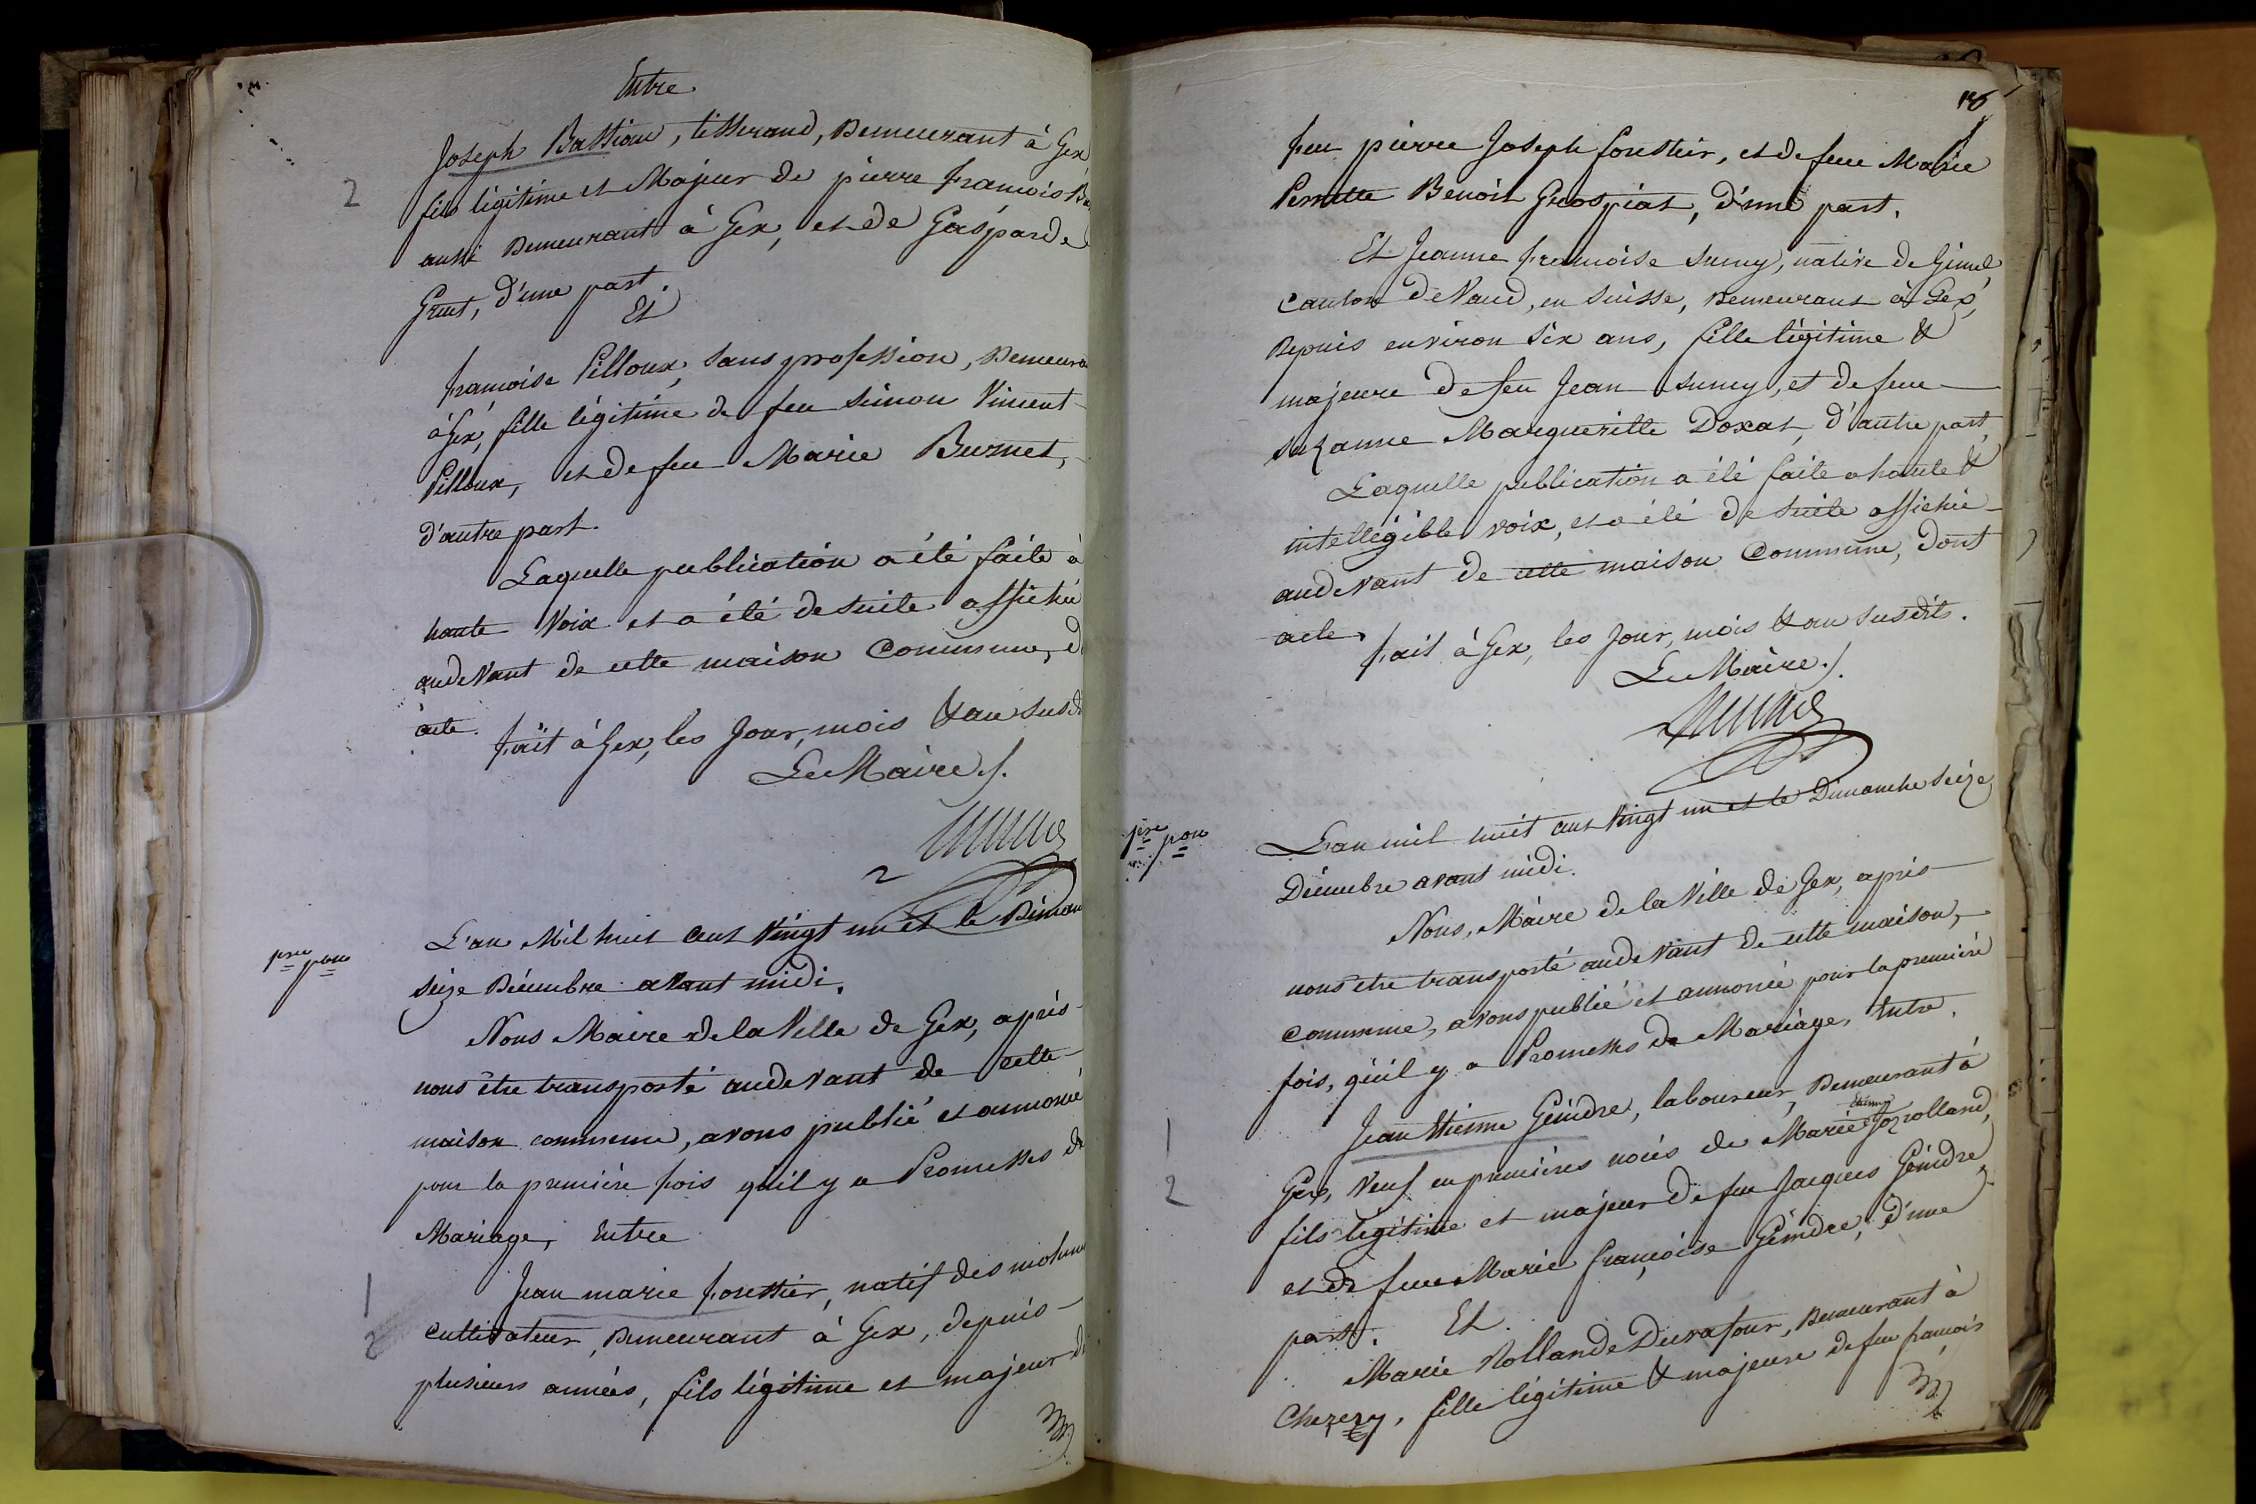 Entre
Joseph Bastian, tisserand, Demeurant à Gex
2
fils légitime et Majeur de pierre francois
aussi Demeurant à Gex, et de Gasparde
Grut, d'une part.
Et
françoise Pilloux, sans profession, Demeura
à Gex, fille légitime de feu Simon Vincent
Pilloux, et de feu Marie Burnet,
d'autre part.
Laquelle publication a été faite à
haute Voix et a été de suite affiché
audevant de cette maison Commune, d
acte.
fait à Gex, les Jour, mois & an susd
Le Maire.
pre pon
L'an Mil huit cent Vingt un et le Diman
seize Décembre avant midi.
Nous Maire de la Ville de Gex, après
nous être transporté audevant de cette
maison commune, avons publié et annoncé
pour la première fois qu'il y a Promesses de
Mariage, Entre
1
Jean marie forestier, natif des
2
cultivateur, Demeurant à Gex, depuis
plusieurs années, fils légitime et majeur de
feu pierre Joseph forestier, et de feue Marie
Pernette Benoit Grospiat, d'une part.
Et Jeanne francoise Sumy, native de Gimel
canton de Vaud, en Suisse, Demeurant à Gex,
Depuis environ Six ans, fille légitime &
majeure de feu Jean Sumy, et de feue
Suzanne Marguerille Doxat, d'autre part,
Laquelle publication a été faite a haute &
intelligible voix, et a été de suite affiché
audevant de cette maison Commune, Dont
acte.
fait à Gex, les Jour, mois & an susdits.
Le Maire.
pre pon
L'an mil huit cent Vingt un et le Dimanche seize
Décembre avant midi.
Nous, Maire de la Ville de Gex, après
nous être transporté audevant de cette maison,
commune, avons publié et annoncé pour la première
fois, qu'il y a Promesses de Mariage, Entre.
1
Jean Etienne Geindre, laboureur, Demeurant à
2
Gex, Veuf en premières noces de Marie rolland,
fils légitime et majeur de feu Jacques Geindre,
et de feue Marie françoise Geindre, d'une
part.
Et
Marie Rollande Durafour, Demeurant à
Chezery, fille légitime & majeure de feu françois